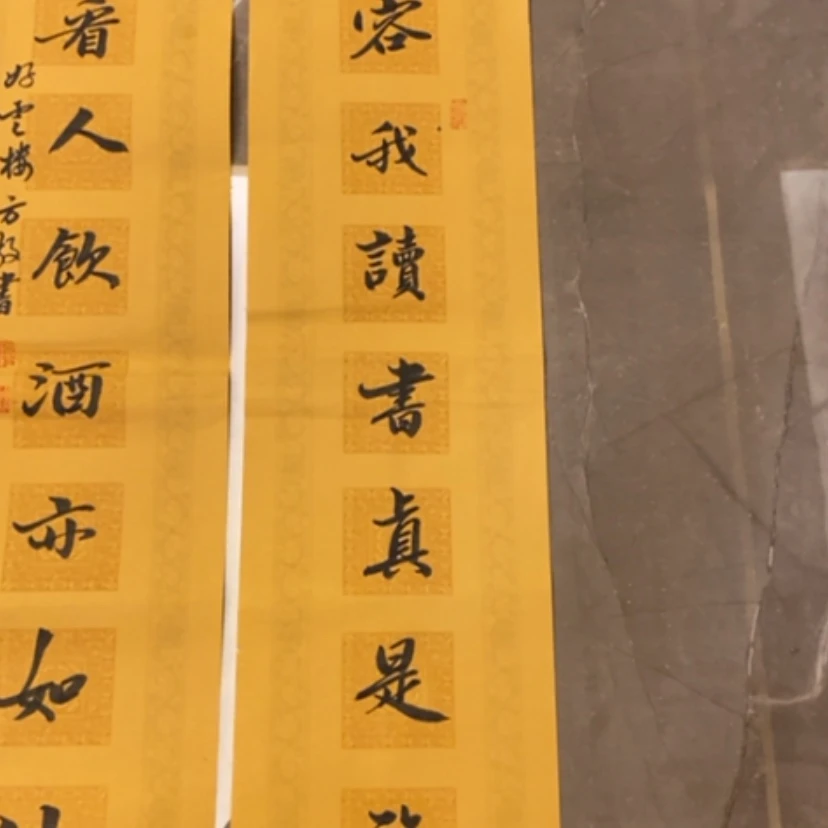 容我讀書真是
看人飲酒亦如
好雲樓方
書